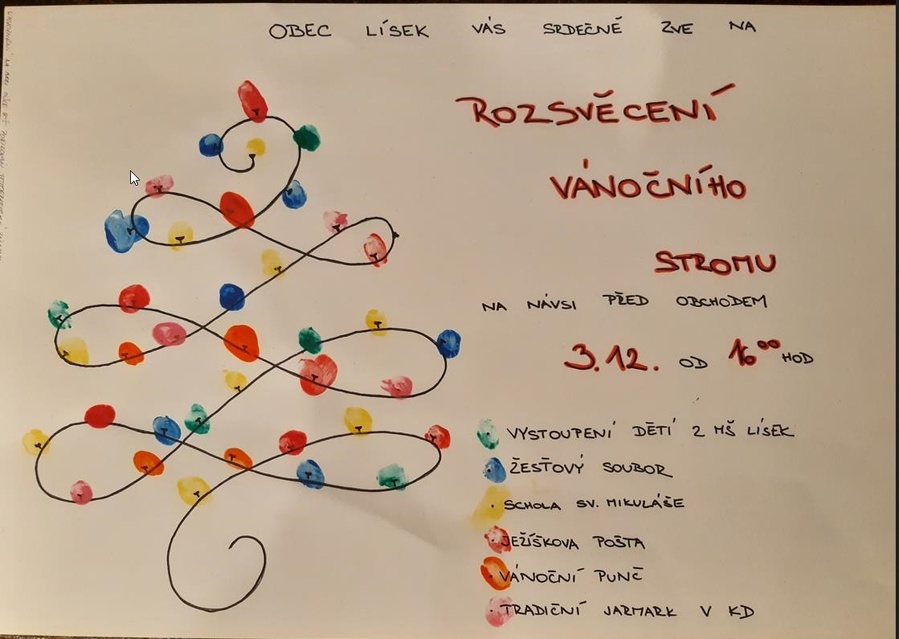 OBEC LÍSEK VÁS SRDEČNĚ ZVE NA
ROZSVĚCENÍ
VÁNOČNÍHO
STROMU
NA NÁVSI PŘED OBCHODEM
3.12. OD 16⁰⁰ HOD
VYSTOUPENÍ DĚTÍ Z MŠ LÍSEK
ŽESŤOVÝ SOUBOR
SCHOLA SV. MIKULÁŠE
JEŽÍŠKOVA POŠTA
VÁNOČNÍ PUNČ
TRADIČNÍ JARMARK V KD